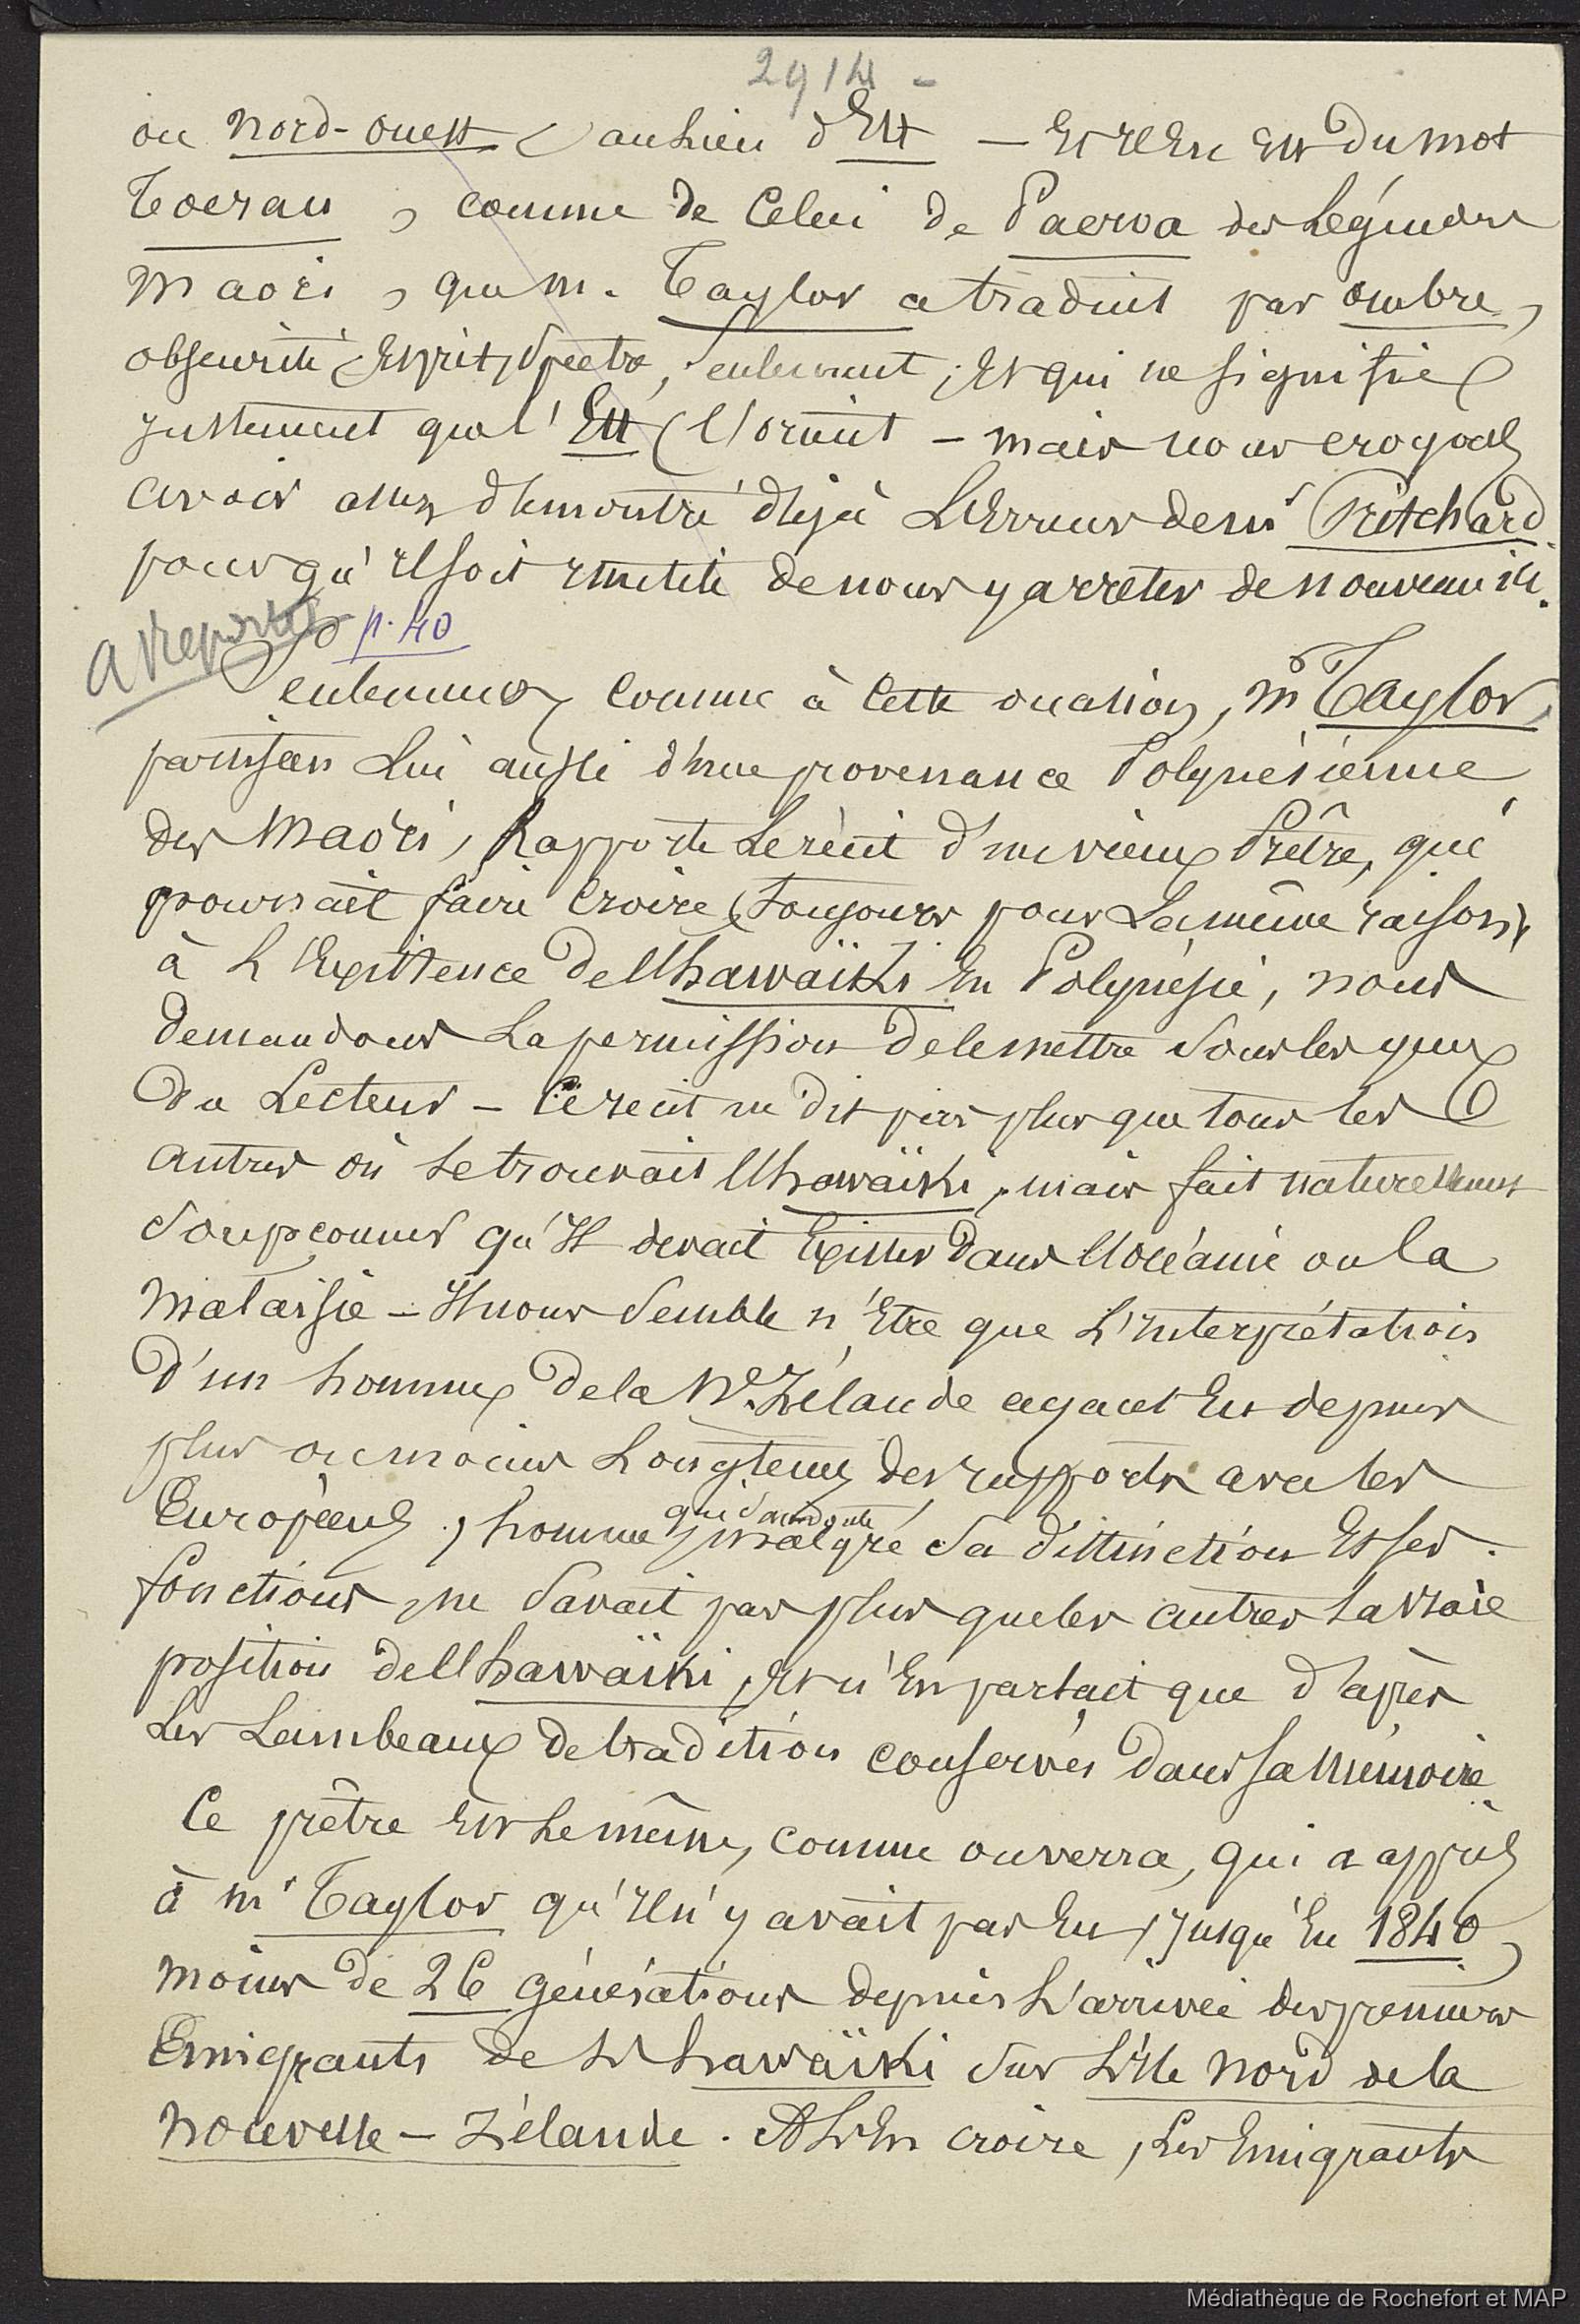 2914 -
ou Nord-ouest, au lieu d'Est — Et il en est du mot
Toerau, comme de celui de Paerva des Légendes
Maori, que M. Taylor a traduit par ombre,
obscurité, Esprit, Spectre, seulement, et qui ne signifie
justement que l'Est (l'orient — mais nous croyons
avoir assez démontré déjà L'Erreur de Mr Pritchard
pour qu'il soit inutile de nous y arrêter de nouveau ici.
A Reporter p. 40
Seulement, comme à cette occasion, Mr Taylor,
partisan Lui aussi d'une provenance Polynésienne
des Maori, Rapporte Le récit d'un vieux Prêtre, qui
pourrait faire croire (toujours pour La même raison)
à L'Existence de l'hawaïki en Polynésie, nous
demandons La permission de le mettre sous les yeux
du Lecteur — Ce récit ne dit pas plus que tous les
autres où se trouvait l'hawaïki, mais fait naturellement
soupçonner qu'Il devait Exister dans l'océanie ou la
Malaisie — Il nous semble n'Etre que L'interprétation
d'un homme de la Nle Zélande ayant Eu depuis
plus ou moins Longtems des rapports avec les
Européens, homme qui sans doute malgré sa distinction Et ses
fonctions, ne savait pas plus que les autres La vraie
position de l'hawaïki, Et n'En parlait que d'après
Les Lambeaux de tradition conservés dans sa Mémoire.
Ce prêtre Est Le même, comme on verra, qui a appris
à Mr Taylor qu'Il n'y avait pas Eu, jusqu'En 1840,
moins de 26 générations depuis L'arrivée des premiers
Emigrants de L'hawaïki sur L'Ile Nord de la
Nouvelle-Zélande. A L'En croire, Les Emigrants
Médiathèque de Rochefort et MAP